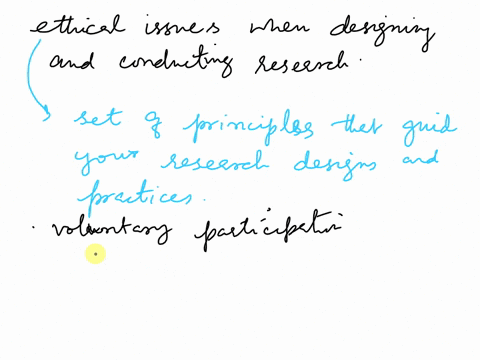 ethical issues when designing
and conducting research.
set of principles that guid
your research designs and
practices.
. voluntary participation